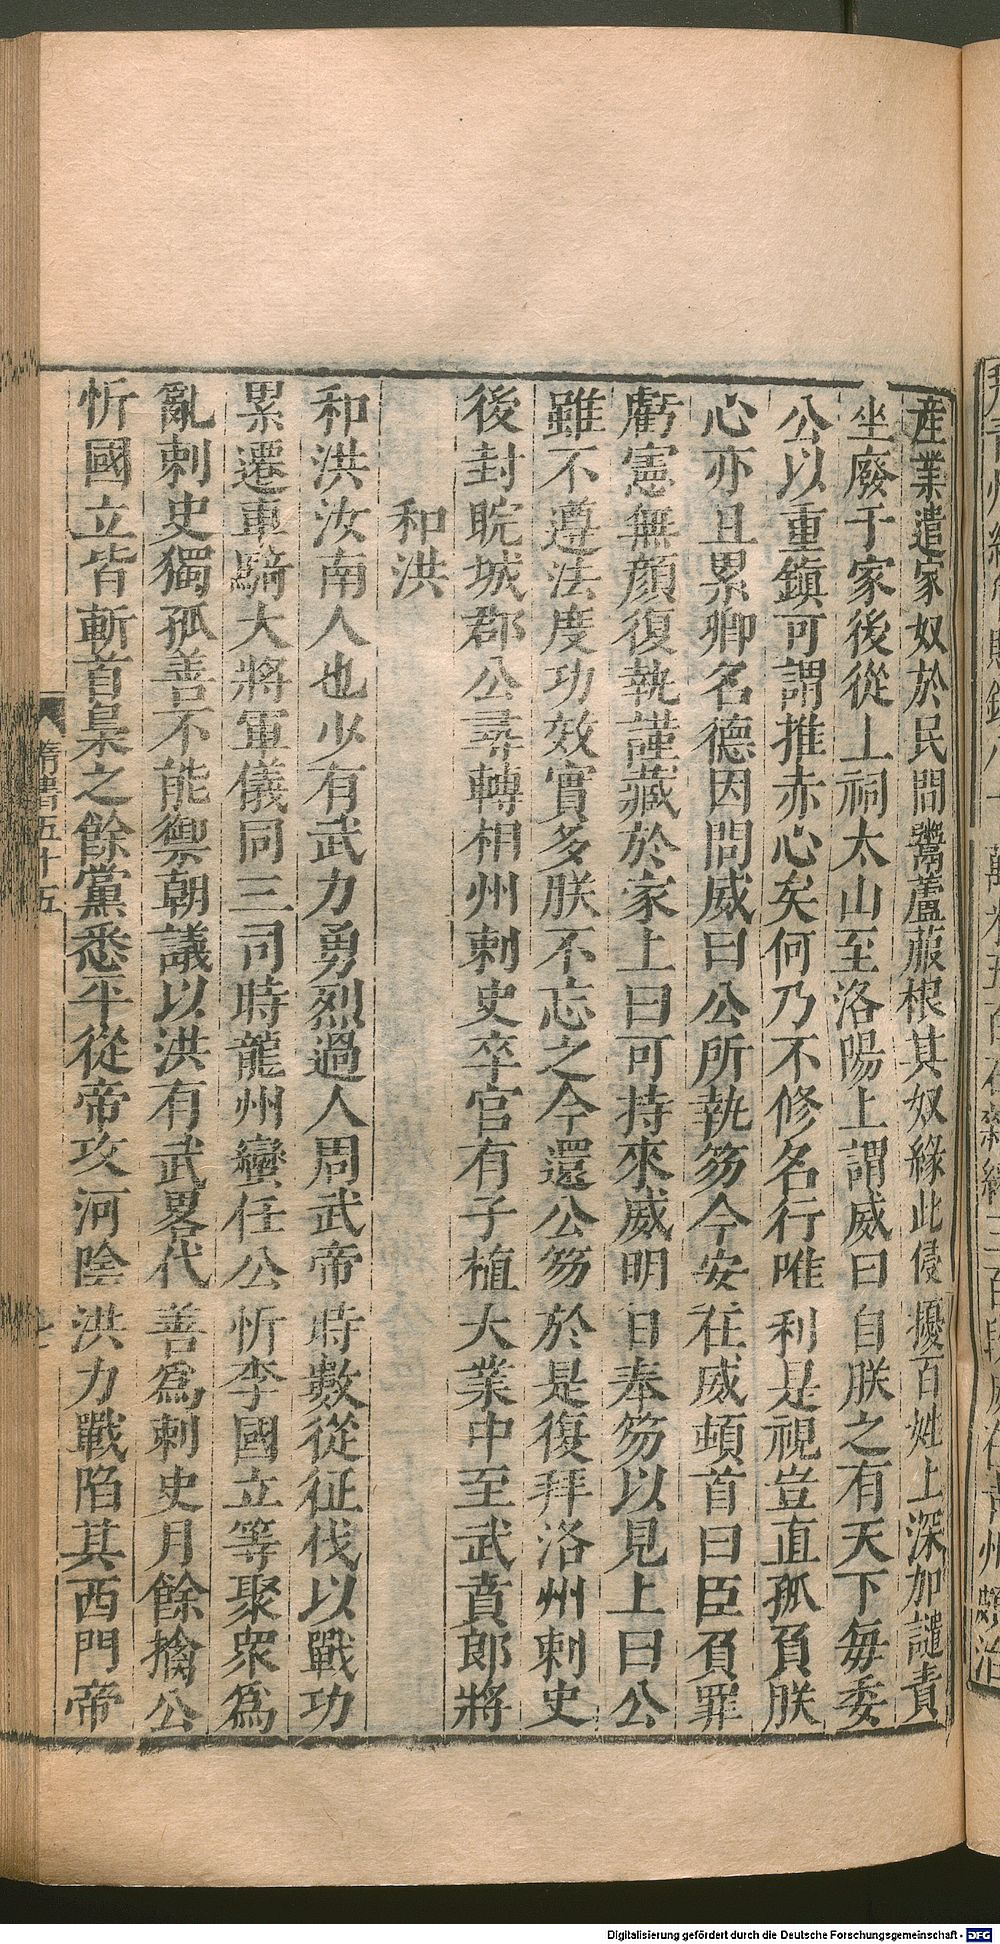 産業遣家奴於民間鬻蘆菔根其奴緣此侵擾百姓上深加譴責
坐廢于家後從上祠太山至洛陽上謂威曰自朕之有天下毎委
公以重鎮可謂推赤心矣何乃不修名行唯利是視豈直孤負朕
心亦且累卿名德因問威曰公所執笏今安在威頓首曰臣負罪
虧憲無顔復執謹藏於家上曰可持來威明日奉笏以見上曰公
雖不遵法度功效實多朕不忘之今還公笏於是復拜洛州刺史
後封晥城郡公尋轉相州刺史卒官有子植大業中至武賁郎將
和洪
和洪汝南人也少有武力勇烈過人周武帝時數從征伐以戰功
累遷車騎大將軍儀同三司時龍州蠻任公忻李國立等聚衆爲
亂刺史獨孤善不能禦朝議以洪有武畧代善爲刺史月餘擒公
忻國立皆斬首梟之餘黨悉平從帝攻河陰洪力戰陷其西門帝
隋書五十五
Digitalisierung gefördert durch die Deutsche Forschungsgemeinschaft - DFG